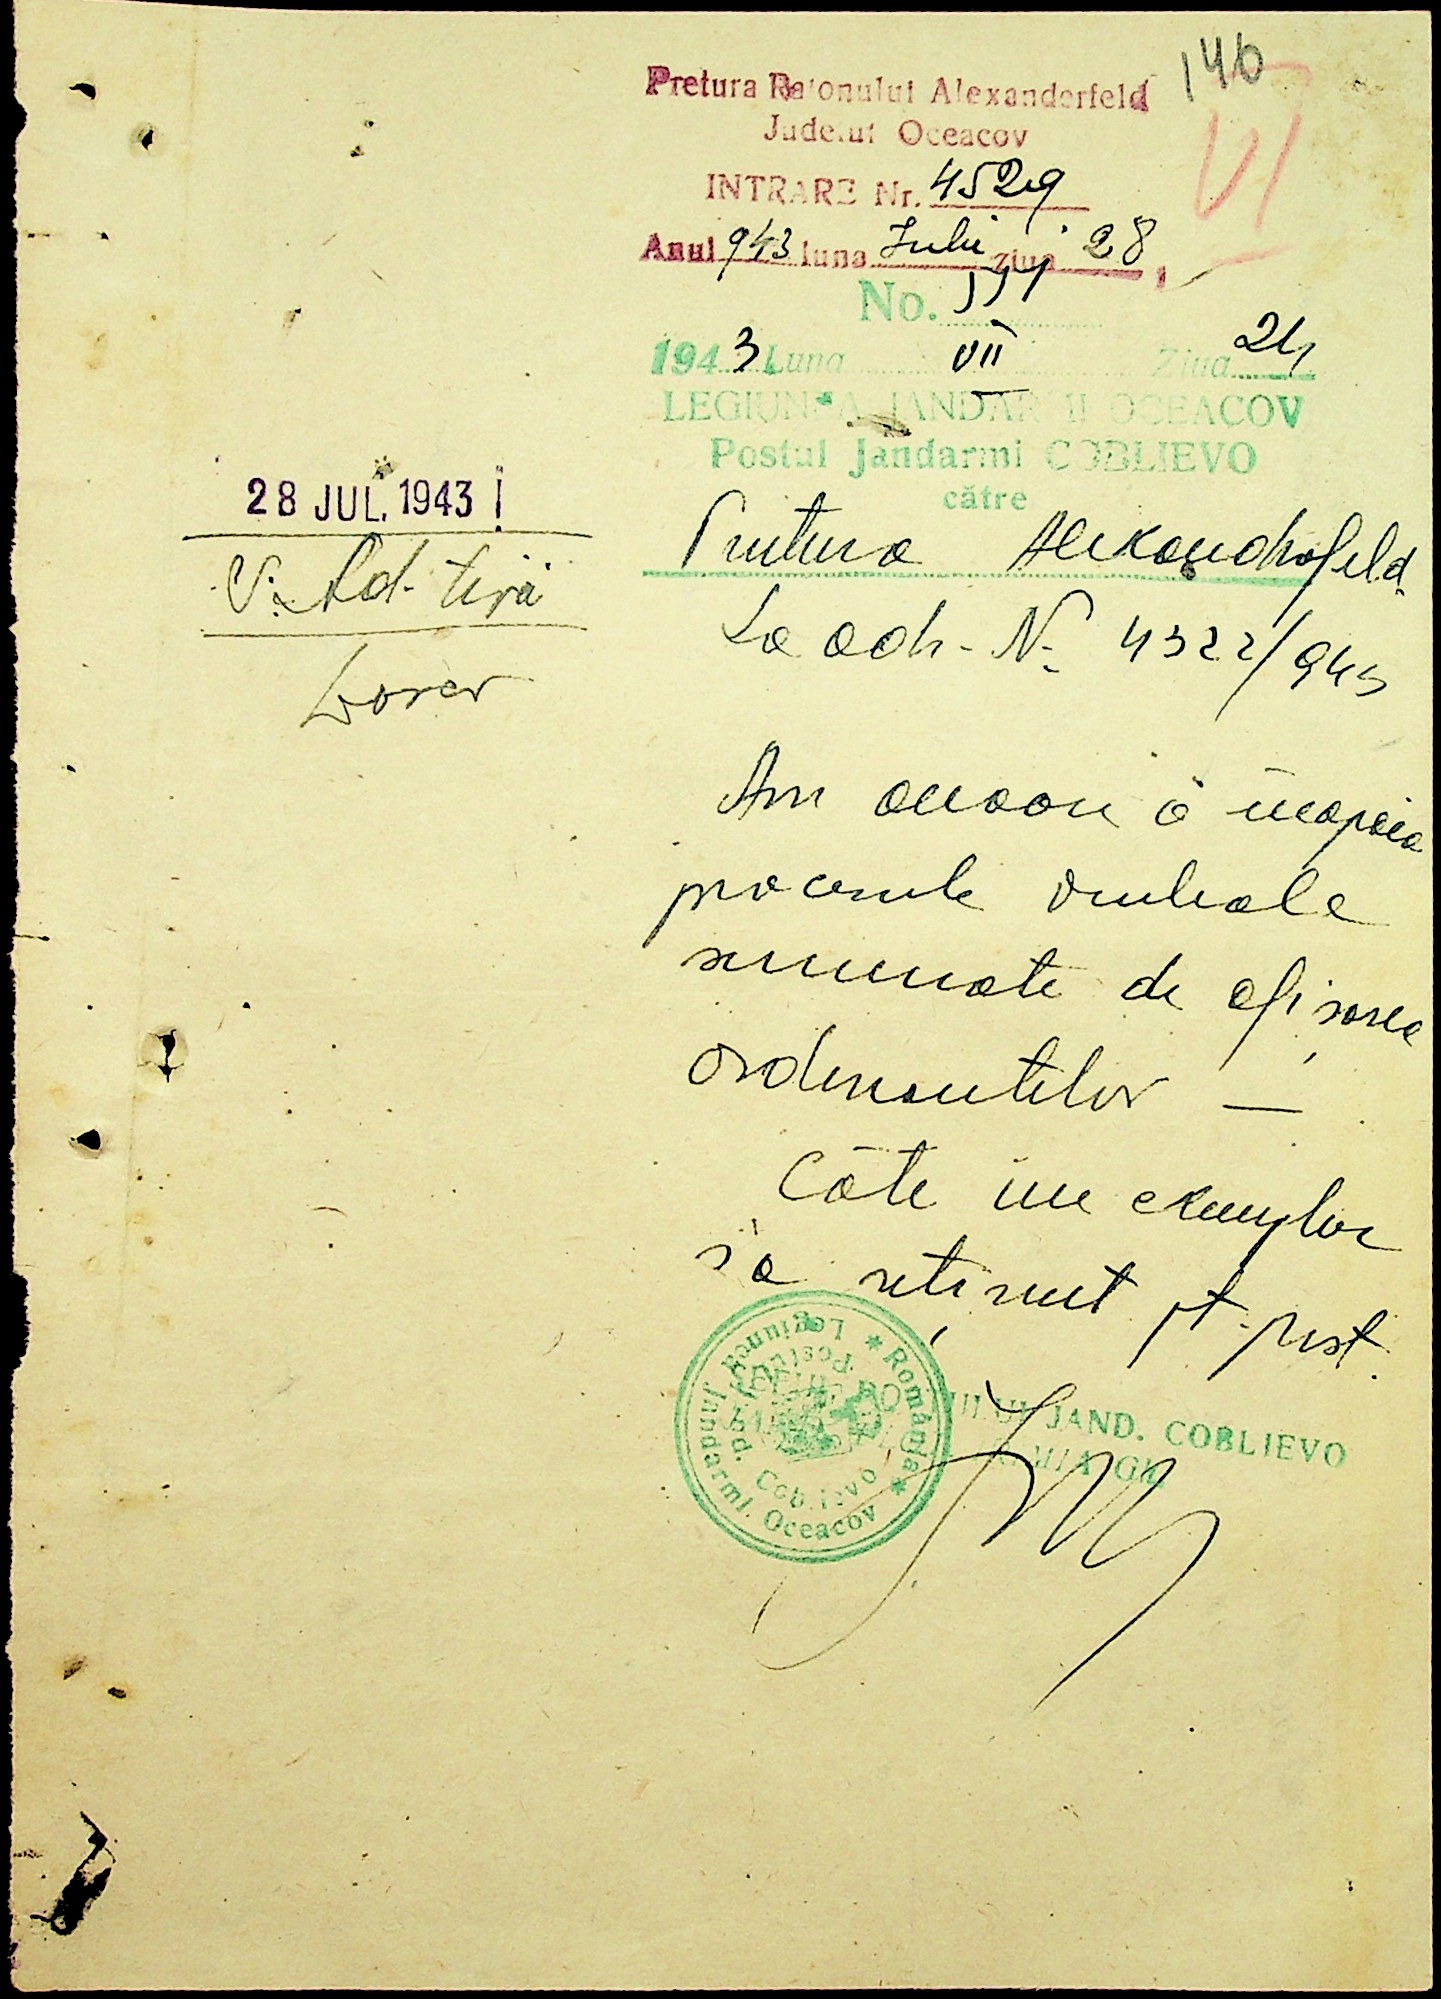 146
VI
Pretura Raionului Alexanderfeld
Județul Oceacov
INTRARE Nr. 4529
Anul 943 luna Iulie ziua 28
No.
1943 Luna VII Ziua 24
LEGIUNEA JANDARMI OCEACOV
Postul Jandarmi COBLIEVO
către
Pretura Alexandrofeld
La adr. Nr. 4322/943
28 JUL. 1943
Am onoare a înapoia
procesele verbale
semnate de afișarea
ordonantelor —
Câte un exemplar
s'a reținut pt. post.
ȘEFUL POSTULUI JAND. COBLIEVO
România * Legiunea Jandarmi Oceacov *
Postul Jand. Coblievo